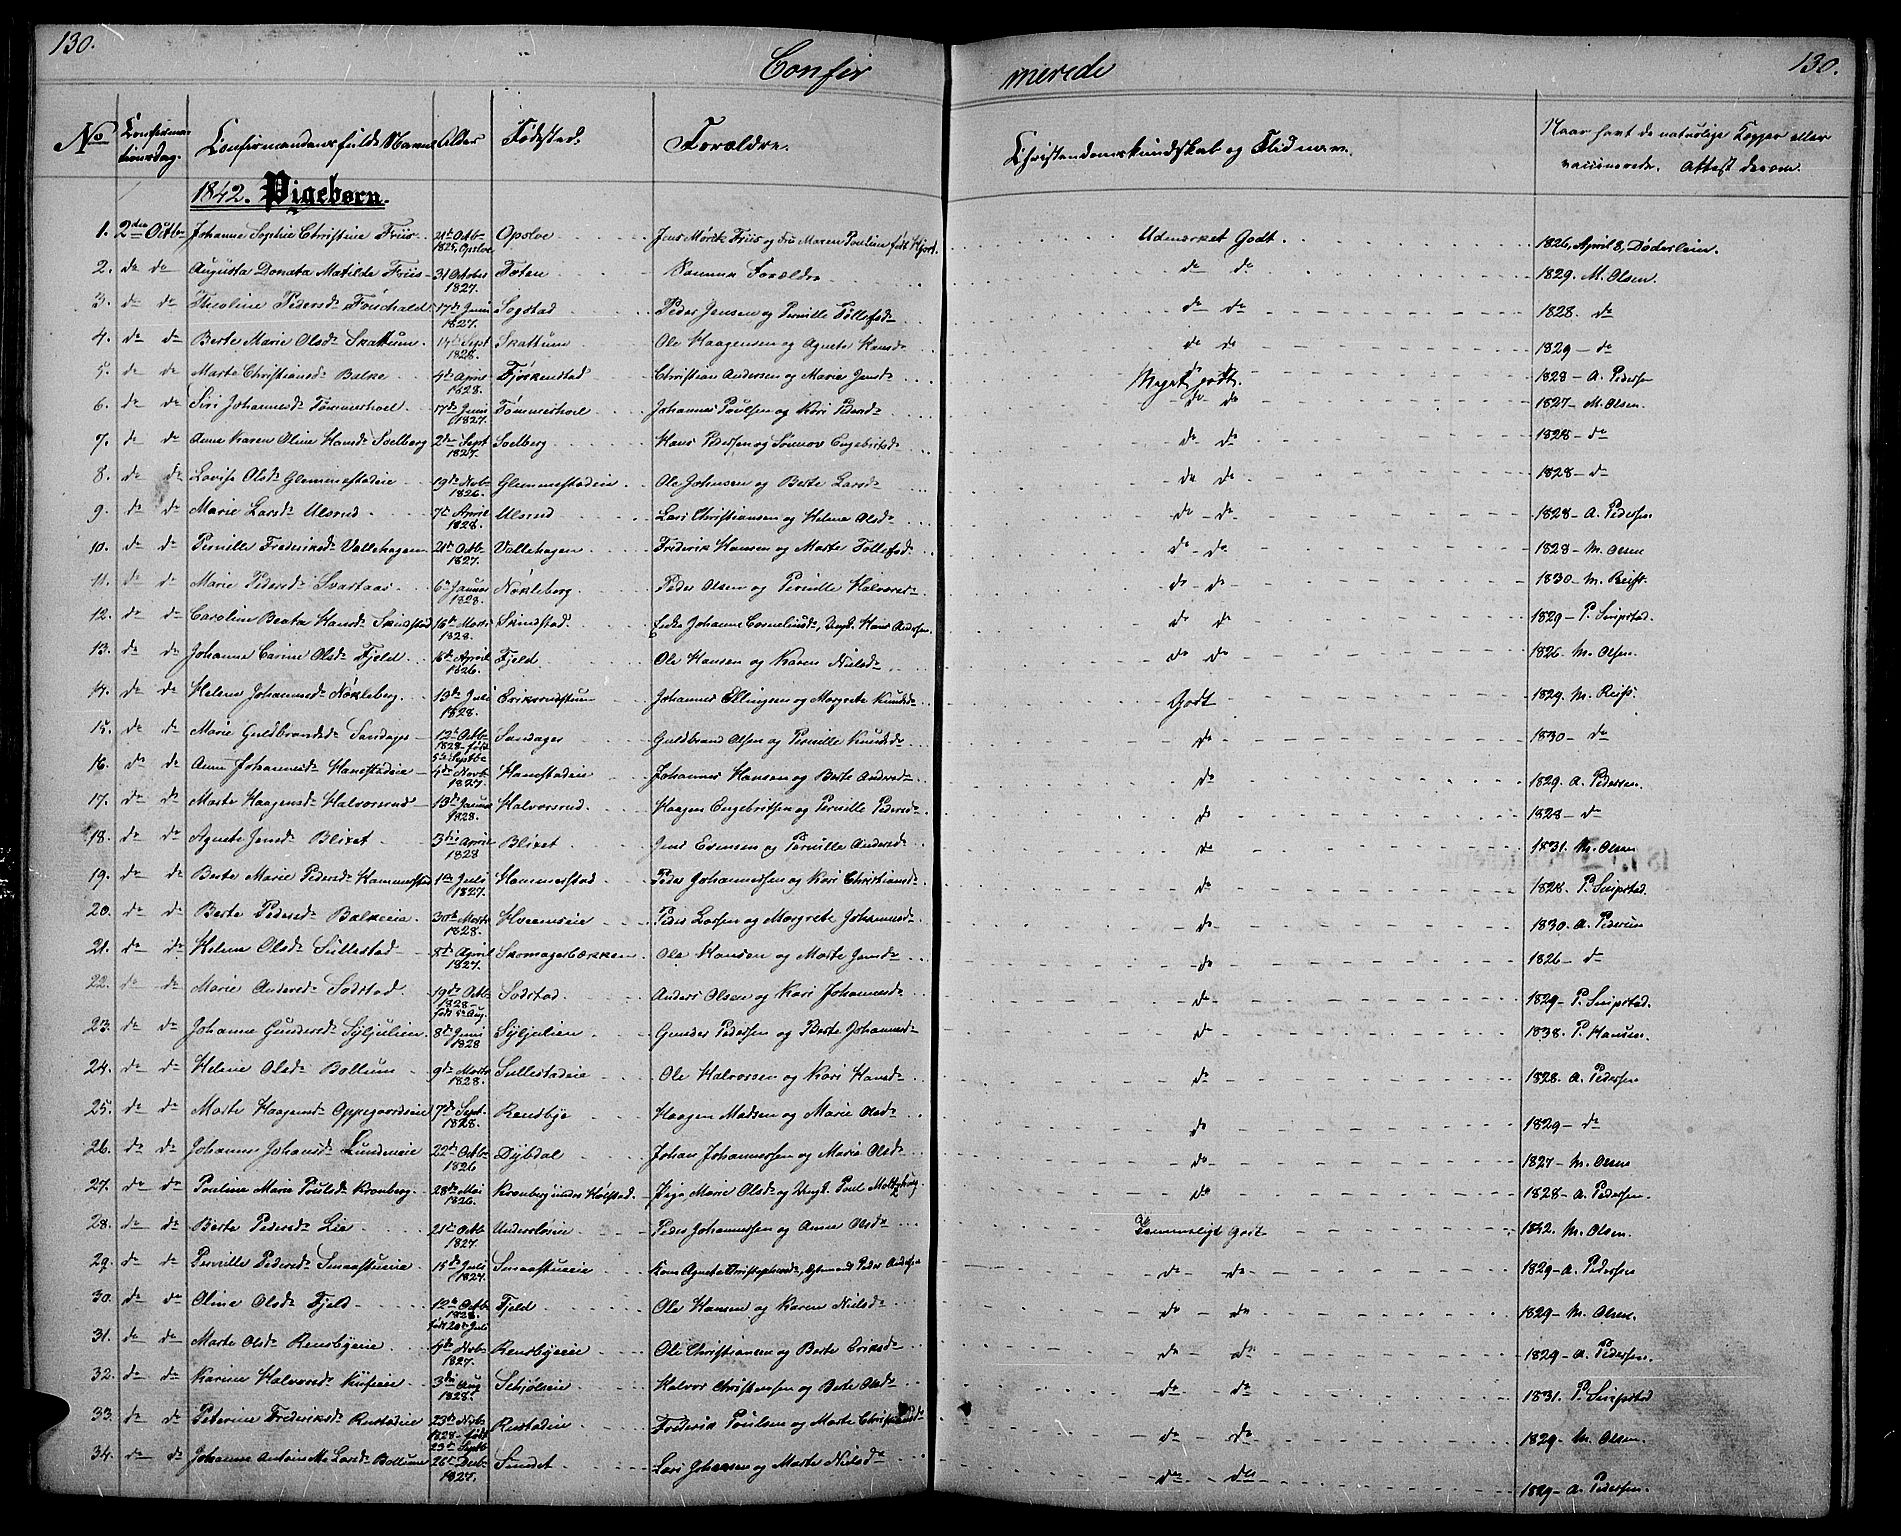 130.
Confir merede
130.
No Confirmationsdag. Confirmandens fulde Navn Alder Fødested. Forældre. Christendomskundskab og Flid m.v. Naar havt de naturlige Kopper eller vaccinerede. Attest derom.
1842. Pigebørn.
1. 2den Octbr Johanne Sophie Christine Friis 21de Octb 1825, Opsloe Opsloe Jens Mørik Friis og Fru Maren Poulin født Hjort. Udmærket Godt. 1826, April 8, Døderlein.
2. do do Augusta Donata Matilde Friis 31 October 1827. Toten Samme Forældre do do 1829. M. Olsen.
3. do do Nicoline Pedersdr 17de Juni 1827. Sogstad Peder Jensen og Pernille Tollefsdr do do 1828. do
4. do do Berte Marie Olsdr Skattum 14de Sept 1828. Skattum Ole Haagensen og Agnete Hansdr do do 1829 - do
5. do do Marte Christiansdr Balke 4de April 1828. Fjøkkenstad Christian Andersen og Marie Jensdr Meget godt. 1828 - A. Pedersen
6. do do Siri Johannesdr Tømmerhoel 17de Juni 1827. Tømmerhoel Johannes Poulsen og Kari Pedersdr do do 1827 - M. Olsen.
7. do do Anne Karen Oline Hansdr Soelberg 2den Sept 1827. Soelberg Hans Pedersen og Sønnov Engebretsdr do do 1828 - do
8. do do Lovise Olsdr Glemmestadeie 19de Novb 1826. Glemmestadeie. Ole Johansen og Berte Larsdr do do 1828 - do
9. do do Marie Larsdr Ulsrud 7de April 1828. Ulsrud Lars Christiansen og Helene Olsdr do do 1828 - A. Pedersen.
10. do do Pernille Frederiksdr Vallehagen 21de Octb 1827. Vallehagen Frederik Hansen og Marte Tollefsdr do do 1828 - M. Olsen
11. do do Marie Pedersdr Svartaas 6te Januar 1828. Nøkleberg Peder Olsen og Pernille Halvorsdr do do 1830 - M. Reist.
12. do do Caroline Beata Hansdr Skindstad 16de Marts 1828. Skindstad. Enke Johanne Cornelius dr, Ungk. Hans Andersen. do do 1829 - P. Snipstad.
13. do do Johanne Carine Olsdr Fjeld 16de April 1826. Fjeld Ole Hansen og Karen Nielsdr do do 1826 - M. Olsen.
14. do do Helene Johannesdr Nøkleberg. 13de Juli 1828. Eriksrudstuen Johannes Ellingsen og Margrete Knudsdr Godt 1829. M. Reist.
15. do do Marie Guldbrandsdr Sandager 12te Octb 1828 - født 5te Septbr Sandager Guldbrand Olsen og Pernille Knudsdr do 1830 - do
16. do do Anne Johannesdr Hanestadeie 4de Novb 1827. Hanestadeie Johannes Hansen og Berte Andersdr do 1829. A. Pedersen.
17. do do Marte Haagensdr Halvorsrud 13de Januar 1828. Halvorsrud. Haagen Engebretsen og Pernille Pedersdr do 1828 - do
18. do do Agnete Jensdr Blixet 3die April 1828 Blixet Jens Evensen og Pernille Andersdr do 1831. M. Olsen
19. do do Berte Marie Pedersdr Hammerstad 1ste Juli 1827. Hammerstad Peder Johannessen og Kari Christiansdr do 1828. P. Snipstad.
20. do do Berte Pedersdr Balkeeie 30te Marts 1828. Kveemseie Peder Larsen og Margrete Johannesdr do 1830. A. Pedersen
21. do do Helene Olsdr Sullestad 8de April 1827. Skomagerbækken Ole Hansen og Marte Jensdr do 1826 - do
22. do do Marie Andersdr Sodstad 19de Octb 1828 - født 5te Aug. Sodstad. Anders Olsen og Kari Johannesdr do 1829 - P. Snipstad.
23. do do Johanne Gundersdr Syljulien. 8de Juni 1828 Syljulien Gunder Pedersen og Berte Johannesdr do 1838. P. Hansen.
24. do do Helene Olsdr Bollum 9de Marts 1828. Sullestadeie Ole Halvorsen og Kari Hansdr do 1828. A. Pedersen
25. do do Marte Haagensdr Oppegaardseie 7de Sept. 1828. Rensbye Haagen Madsen og Marie Olsdr do 1829 - do
26. do do Johanne Johansdr Lundeneie 22de Octb 1826 Dybdal Johan Johannessen og Marie Olsdr do 1827 - M. Olsen
27. do do Pouline Marie Poulsdr Kronberg. 28de Mai 1826. Kronberg under Hølstad. Pige Marie Olsdr og Ungk. Poul do 1828 - A. Pedersen.
28. do do Berte Pedersdr Lie 21de Octb 1827. Underslueie Peder Johannessen og Anne Olsdr Temmeligt godt 1842. M. Olsen.
29. do do Pernille Pedersdr Smaastueeie 15de Juli 1827. Smaastueeie Kone Agnete Christophersdr, Gjtmand Peder Andersen do do 1829 - A. Pedersen
30. do do Oline Olsdr Fjeld 12te Octb 1828. født 20de Juli Fjeld Ole Hansen og Karen Nielsdr do do 1829 - M. Olsen.
31. do do Marte Olsdr Rensbyeeie 4de Novb 1827. Rensbyeeie Ole Christiansen og Berte Eriksdr do do 1829 - A. Pedersen.
32. do do Karine Halvorsdr 3die Aug 1828. Schjøleeie Halvor Christensen og Berte Olsdr do do 1831. P. Snipstad
33. do do Peterine Frederiksdr Rustadeie 23de Novb 1828 - født 23de Septb Rustadeie Frederik Poulsen og Marte Christiansdr do do 1829 - M. Olsen.
34. do do Johanne Antoinette Larsdr Bollum 26de Decb 1827. Sundet Lars Johansen og Marte Nielsdr do do 1829 - A. Pedersen.